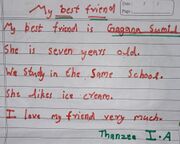 My best friend
My best friend is Gagana Sumid
She is seven years old.
We study in the same school.
She likes ice cream.
I love my friend very much.
Thanzee I.A